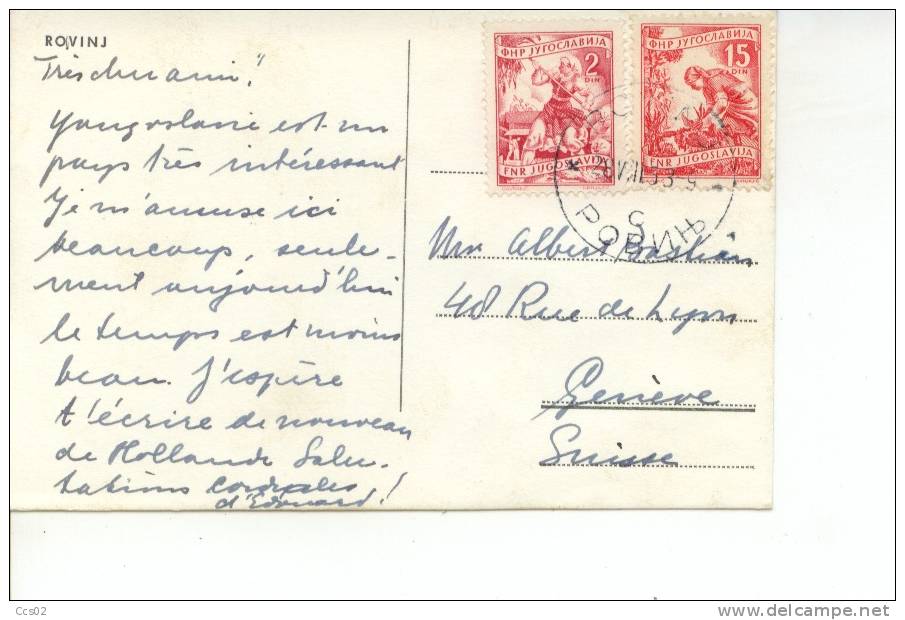 ROVINJ
Très cher ami,
Yougoslavie est un
pays très intéressant
Je m'amuse ici
beaucoup, seule-
ment aujourd'hui
le temps est moins
beau. J'espère
t'écrire de nouveau
de Hollande Salu-
tations cordiales
d'Edouard!
ФНР ЈУГОСЛАВИЈА
2
DIN
FNR JUGOSLAVIJA
ФНР ЈУГОСЛАВИЈА
15
DIN
FNR JUGOSLAVIJA
РОВИЊ
Mr Albert Bastian
48 Rue de Lyon
Genève
Suisse
Ccs02
delcampe.net